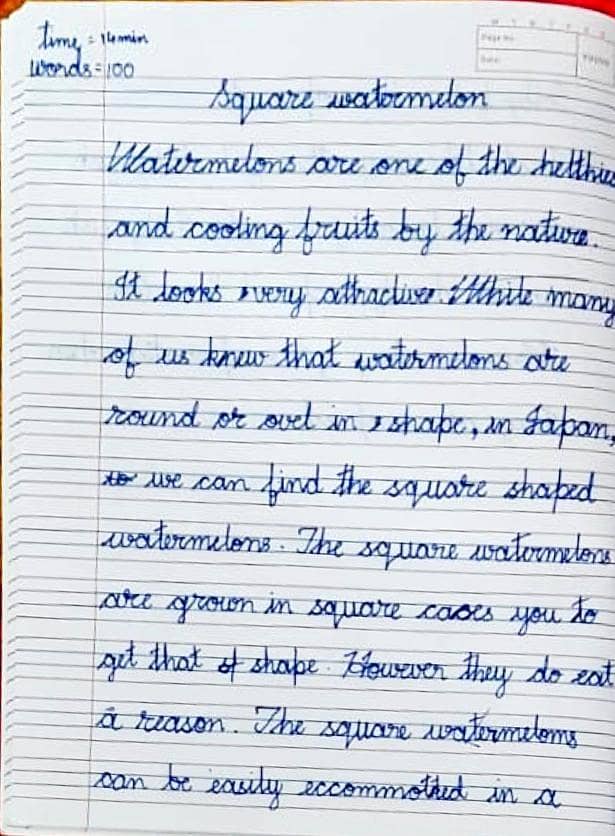 time = 14min
words = 100
M T W T F S S
Page No.:
Date:
YOUVA
Square watermelon
Watermelons are one of the helthies
and cooling fruits by the nature.
It looks very attractive. While many
of us knew that watermelons are
round or ovel in shape, in Japan,
we can find the square shaped
watermelons. The square watermelons
are grown in square cases you to
get that shape. However they do eat
a reason. The square watermelons
can be easily eccommothed in a